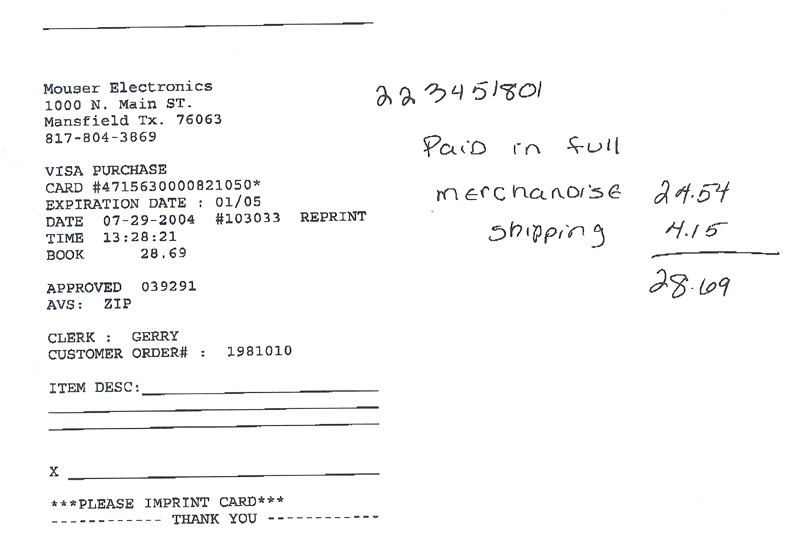 Mouser Electronics
1000 N. Main ST.
Mansfield Tx. 76063
817-804-3869
VISA PURCHASE
CARD #4715630000821050*
EXPIRATION DATE : 01/05
DATE 07-29-2004 #103033 REPRINT
TIME 13:28:21
BOOK 28.69
APPROVED 039291
AVS: ZIP
CLERK : GERRY
CUSTOMER ORDER# : 1981010
ITEM DESC:
X
***PLEASE IMPRINT CARD***
------------ THANK YOU ------------
223451801
Paid in full
merchandise 24.54
shipping 4.15
28.69